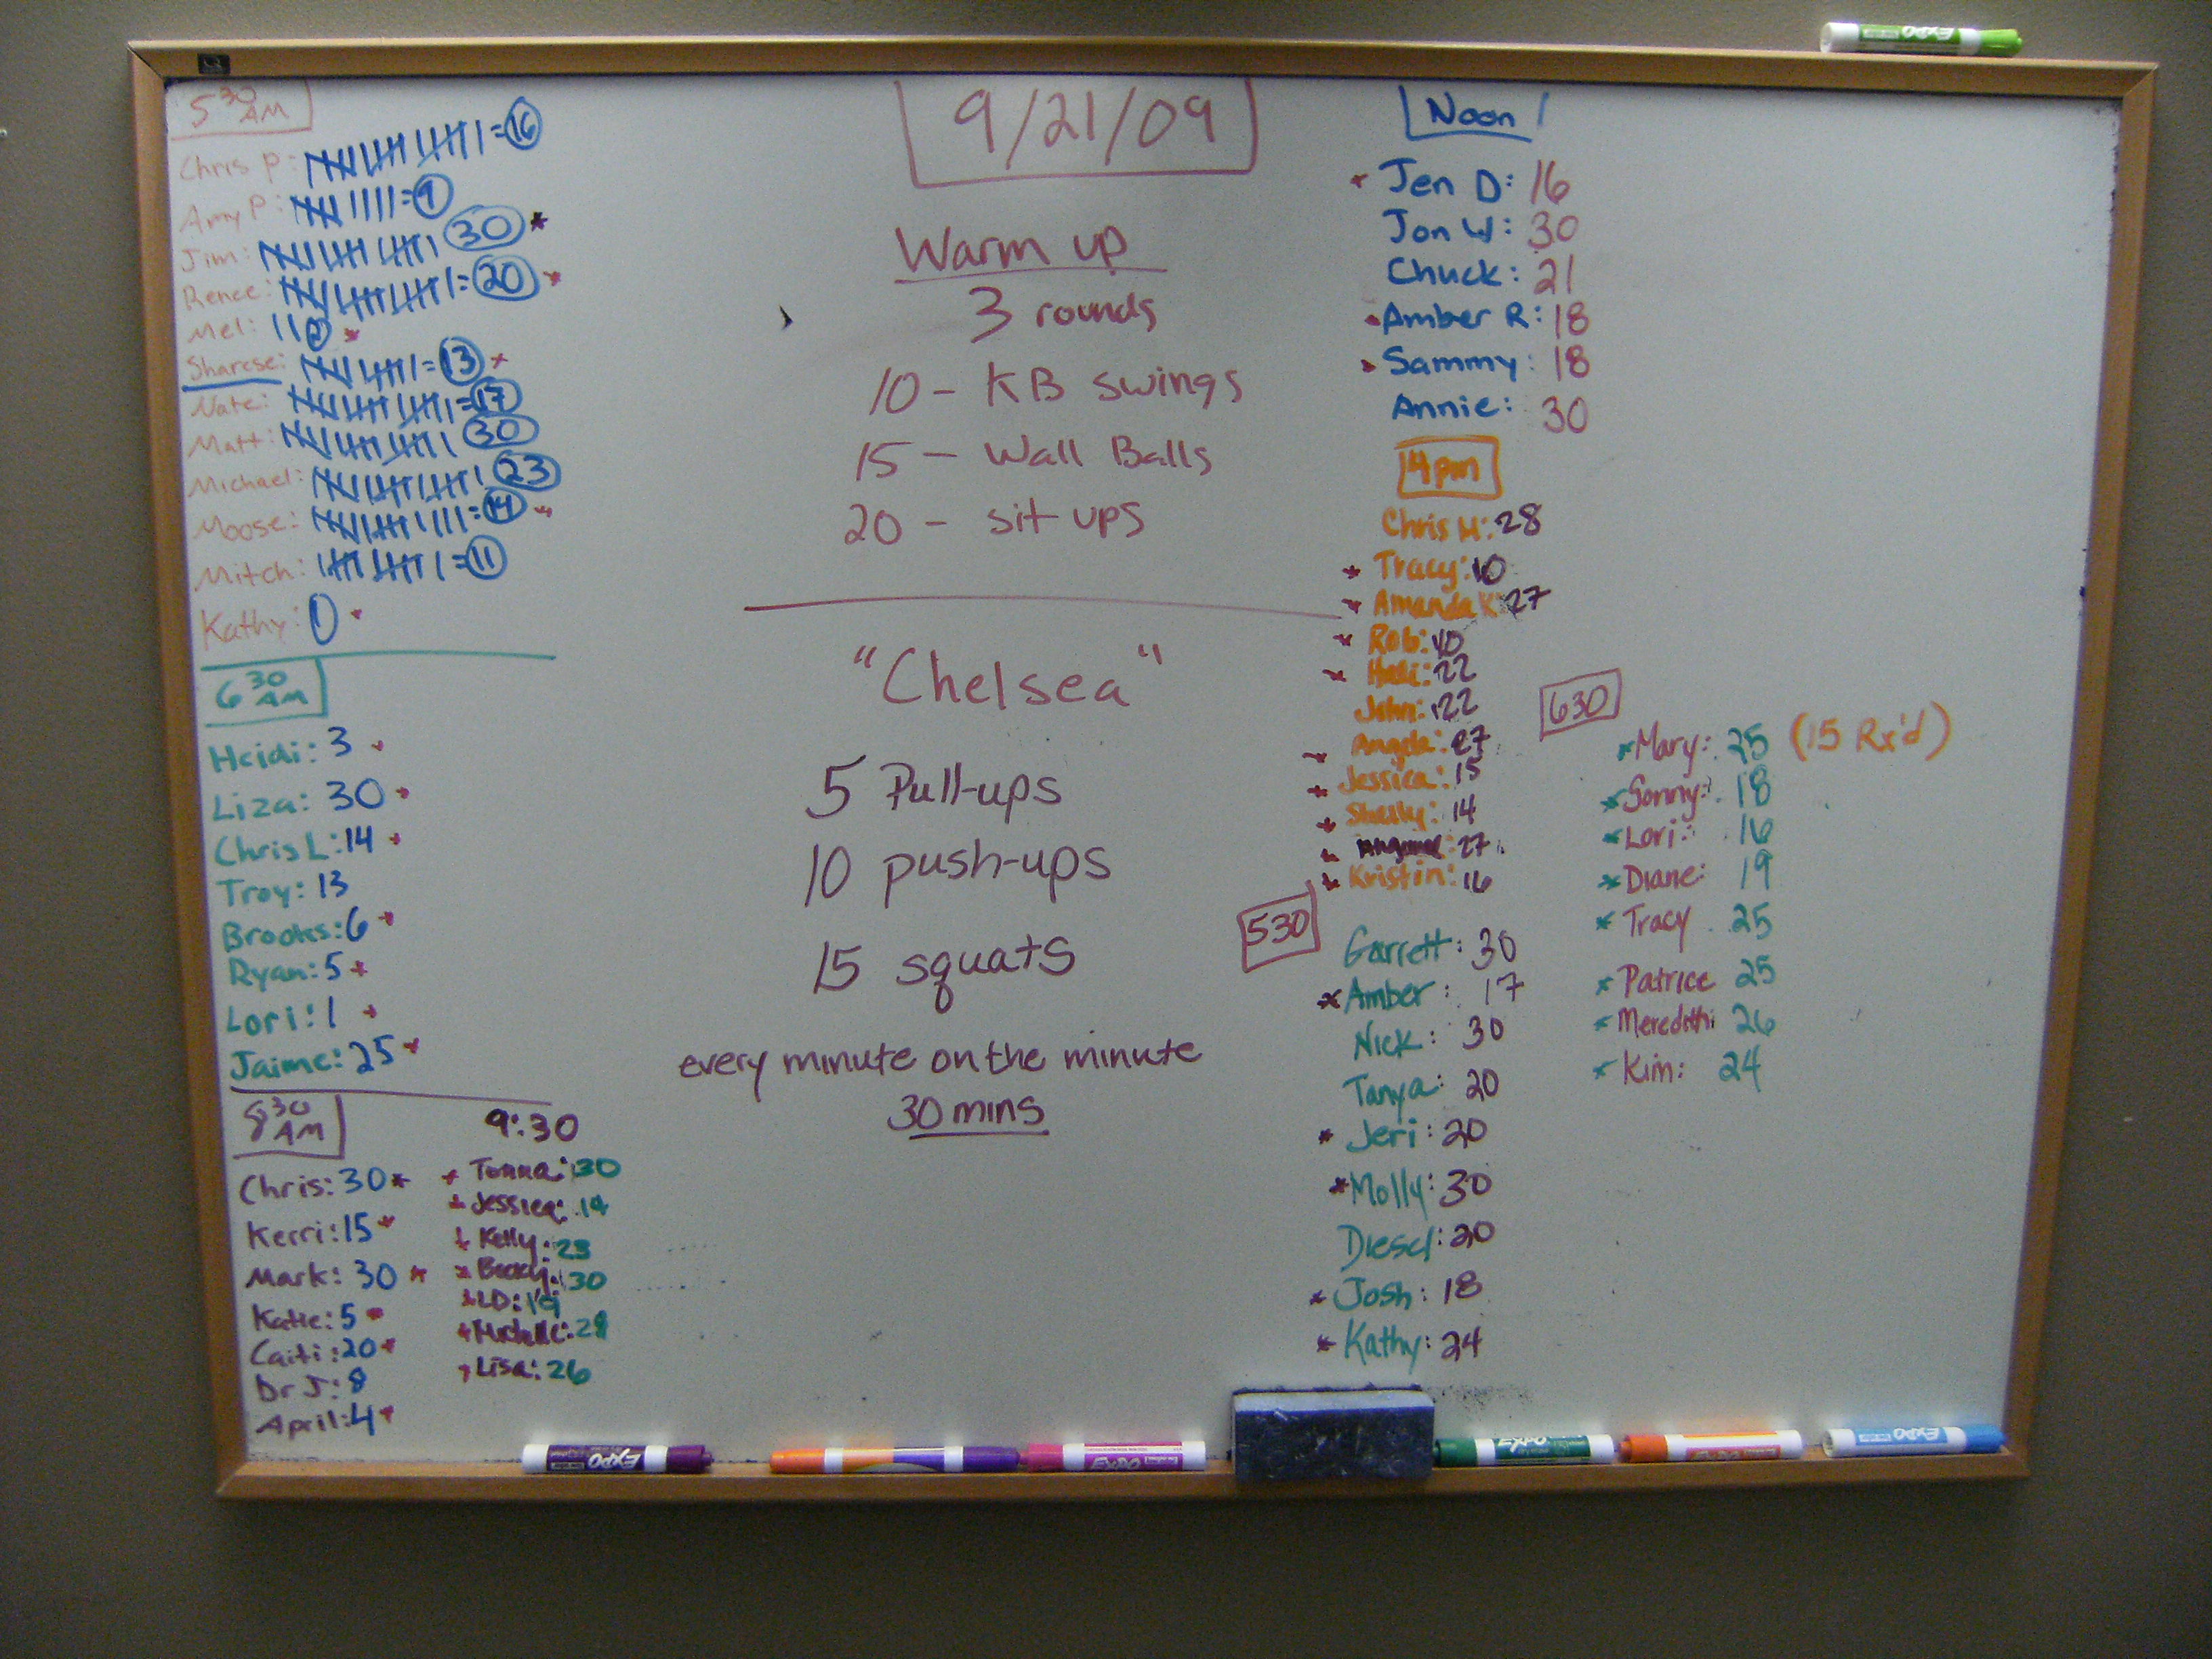 5 30 AM
Chris P: = 16
Amy P: = 9
Jim: 30 *
Renee: = 20 *
Mel: 2 *
Sharese: = 13 *
Nate: = 17
Matt: 30
Michael: 23
Moose: = 14 *
Mitch: = 11
Kathy: 1 *
6 30 AM
Heidi: 3 *
Liza: 30 *
Chris L: 14 *
Troy: 13
Brooks: 6 *
Ryan: 5 *
Lori: 1 *
Jaime: 25 *
8 30 AM
Chris: 30 *
Kerri: 15 *
Mark: 30 *
Katie: 5 *
Caiti: 20 *
Dr J: 8
April: 4 *
9:30
* Tonna: 30
* Jessica: 14
* Kelly: 23
* Becky: 30
* LD: 19
* Michelle:
* Lisa: 26
9/21/09
Warm up
3 rounds
10 - KB swings
15 - Wall Balls
20 - sit ups
"Chelsea"
5 Pull-ups
10 push-ups
15 squats
every minute on the minute
30 mins
Noon
* Jen D: 16
Jon W: 30
Chuck: 21
* Amber R: 18
* Sammy: 18
Annie: 30
4pm
Chris H: 28
* Tracy: 10
* Amanda K: 27
* Rob: 10
* 22
John: 22
* Angela: 27
* Jessica: 15
* Shelly: 14
* 27
* Kristin: 16
530
Garrett: 30
* Amber: 17
Nick: 30
Tanya: 20
* Jeri: 20
* Molly: 30
Diesel: 20
* Josh: 18
* Kathy: 24
630
* Mary: 25 (15 Rx'd)
* Sonny: 18
* Lori: 16
* Diane: 19
* Tracy 25
* Patrice 25
* Meredith: 26
* Kim: 24
EXPO
EXPO
EXPO
EXPO
EXPO
EXPO